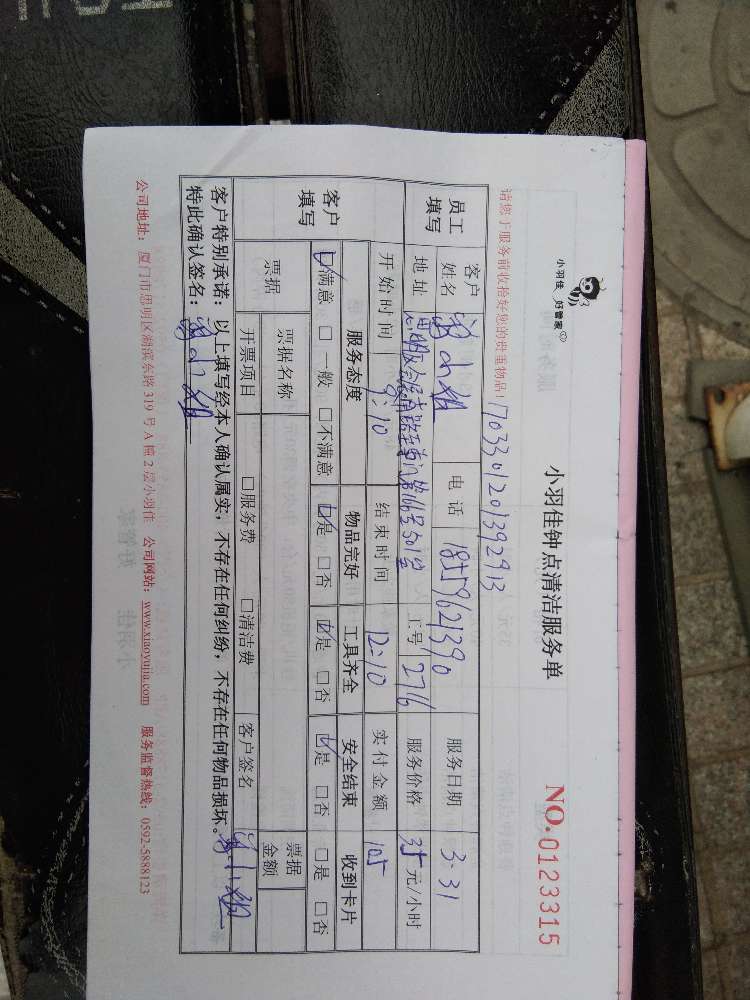 小羽佳 好管家
小羽佳钟点清洁服务单
NO.0123315
请您于服务前收拾好您的贵重物品!
1703301201392913
员工填写
客户姓名 小姐 电话 18559621390 服务日期 3-31
地址 工号 276 服务价格 35 元/小时
开始时间 9:10 结束时间 12:10 实付金额 105
客户填写
服务态度 物品完好 工具齐全 安全结束 收到卡片
☑满意 □一般 □不满意 ☑是 □否 ☑是 □否 ☑是 □否 □是 □否
票据 票据名称 票据金额
开票项目 □服务费 □清洁费 客户签名 小姐
客户特别承诺:以上填写经本人确认属实,不存在任何纠纷,不存在任何物品损坏。
特此确认签名: 小姐
公司地址:厦门市思明区湖滨东路 319 号 A 幢 2 层小羽佳 公司网站:www.xiaoyujia.com 服务监督热线:0592-5888123